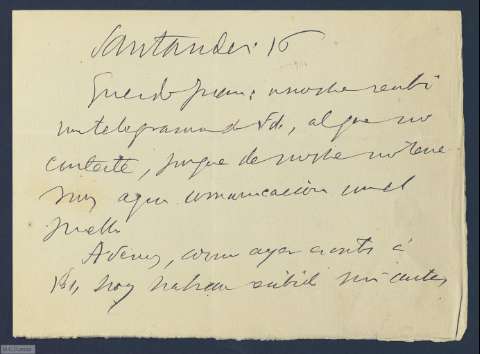 Santander: 16
Querido Juan: anoche recibí
un telegrama de Vd., al que no
contesté, porque de noche no tene
mos aquí comunicación con el
pueblo
Además, como ayer escribí á
Vd., hoy habrán recibido mi carta